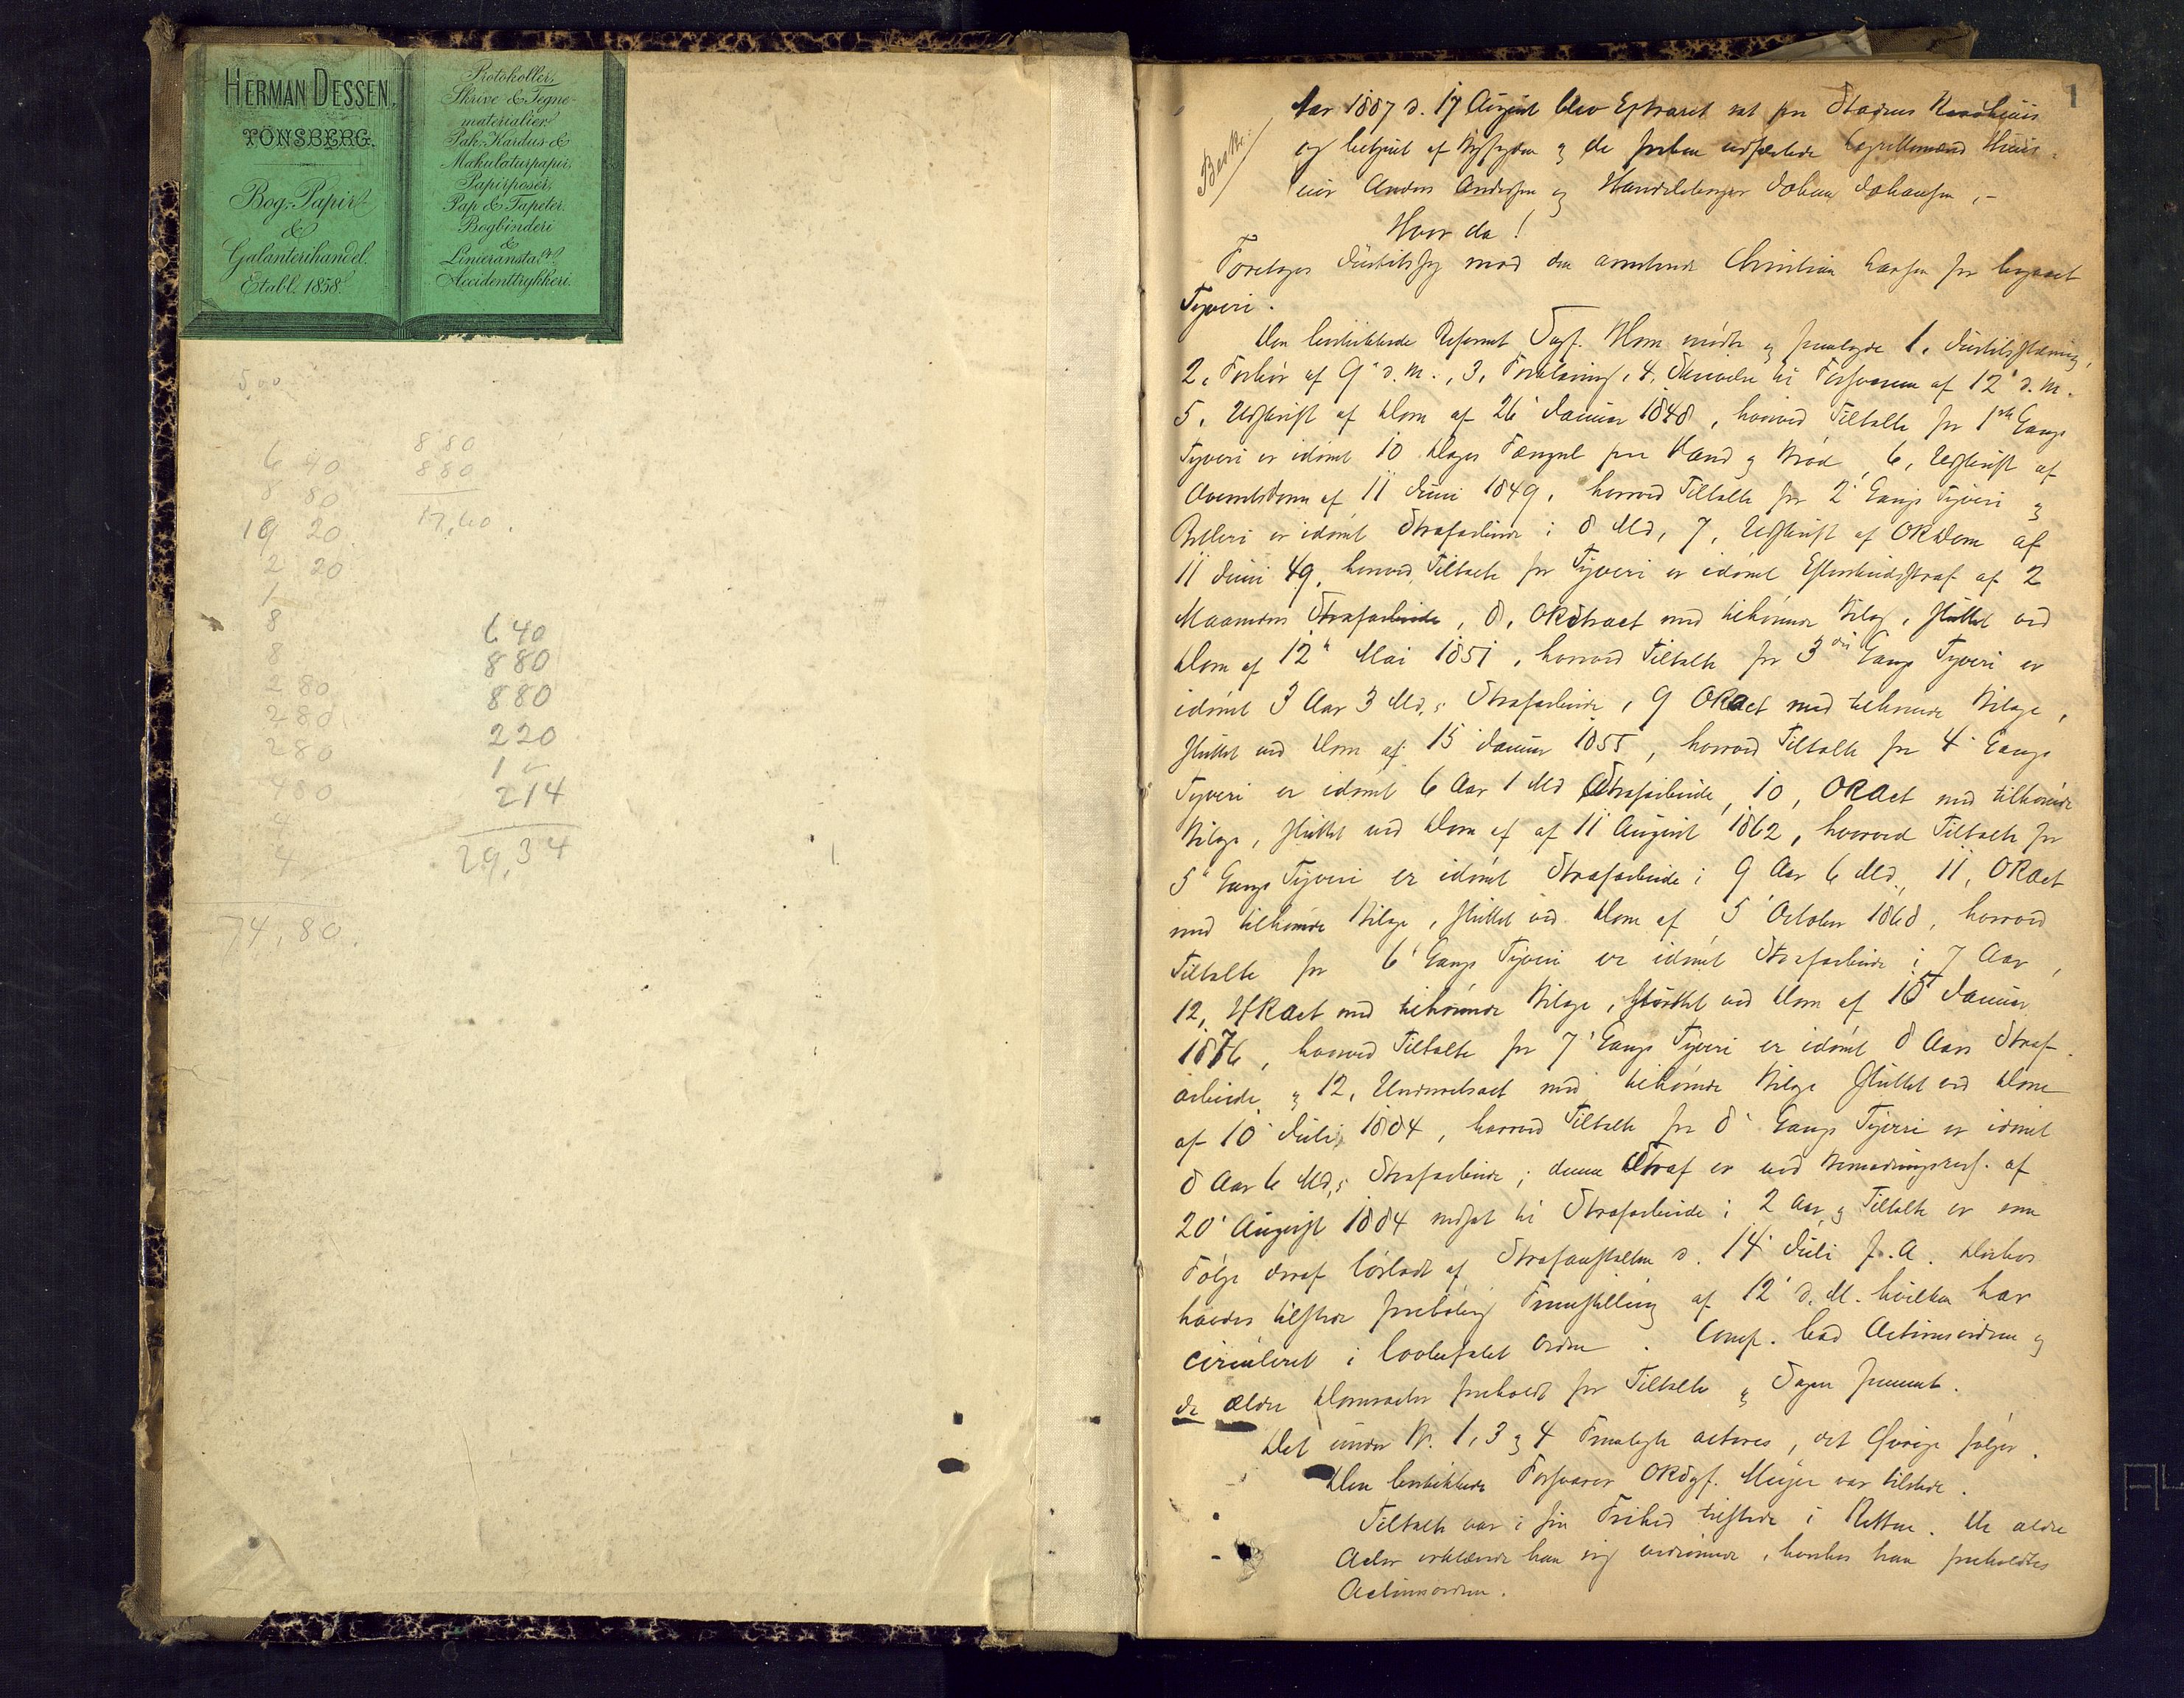 HERMAN DESSEN,
TÖNSBERG.
Bog-, Papir
&
Galanterihandel.
Etabl. 1858.
Protokoller,
Skrive & Tegne-
materialier.
Pak-, Kardus- &
Makulaturpapir.
Papirposer,
Pap & Tapeter.
Bogbinderi
&
Linieranstalt.
Accidenttrykkeri.
500
6 40
8 80
19 20
2 20
1
8
8
2 80
2 80
2 80
4 80
4
4
74,80.
880
880
17,60.
640
880
880
220
1 -
214
29,34
1
Beskr:
Aar 1887 d. 17 August blev Extraret sat paa Stadens Raadhuus
og betjent af Byfogden og de
Anders Andersen og Handelsborger Johan Johansen, -
Hvor da!
Foretoges Justitssag mod den arresterede Christian Hansen for begaaet
Tyveri.
Den beskikkede Referent Sagf. Horn mødte og fremlagde 1, Justitsstævning,
2, Forhør af 9' d. M., 3, Forklaring, 4, Skrivelse til Forsvareren af 12' d. M.
5, Udskrift af Dom af 26' Januar 1848, hvorved Tiltalte for 1ste Gangs
Tyveri er idømt 10 Dages Fængsel paa Vand og Brød, 6, Udskrift af
Dom af 11 Juni 1849, hvorved Tiltalte for 2' Gangs Tyveri og
Hæleri er idømt Strafarbeide i 8 Md, 7, Udskrift af OR Dom af
11 Juni 49, hvorved Tiltalte for Tyveri er idømt af 2
Maaneders Strafarbeide, 8, ORetsact med tilhørende Bilag, sluttet ved
Dom af 12' Mai 1851, hvorved Tiltalte for 3die Gangs Tyveri er
idømt 3 Aar 3 Md,s Strafarbeide, 9 ORact med tilhørende Bilage,
sluttet ved Dom af 15 Januar 1855, hvorved Tiltalte for 4' Gangs
Tyveri er idømt 6 Aar 1 Md Strafarbeide, 10, ORact med tilhørende
Bilage, sluttet ved Dom af af 11 August 1862, hvorved Tiltalte for
5' Gangs Tyveri er idømt Strafarbeide i 9 Aar 6 Md., 11, ORact
med tilhørende Bilage, sluttet ved Dom af 5' October 1868, hvorved
Tiltalte for 6' Gangs Tyveri er idømt Strafarbeide i 7 Aar,
12, HRact med tilhørende Bilage, sluttet ved Dom af Januar
1876, hvorved Tiltalte for 7' Gangs Tyveri er idømt 8 Aars Straf-
arbeide, og 12, Underretsact med tilhørende Bilage sluttet ved Dom
af 10' Juli 1884, hvorved Tiltalte for 8' Gangs Tyveri er idømt
8 Aar 6 Md,s Strafarbeide; denne Straf er ved Benaadningsres. af
20' August 1884 nedsat til Strafarbeide i 2 Aar, og Tiltalte er som
Følge deraf løsladt af Strafanstalten d. 14' Juli f. A. Derhos
havdes tilstede foreløbig Fremstilling af 12' d. M. hvilken har
circuleret i lovbefalet Orden. Comp. bad Actionsordren og
de ældre Domsacter foreholdt for Tiltalte og Sagen fremmet.
Det under No. 1, 3 og 4 Fremlagte acteres, det Øvrige følger.
Den beskikkede Forsvarer ORSgf. Meyer var tilstede.
Tiltalte var i sin Frihed tilstede i Retten. De ældre
Acter erklærede han sig vedrørende, hvorhos han foreholdtes
Actionsordren.